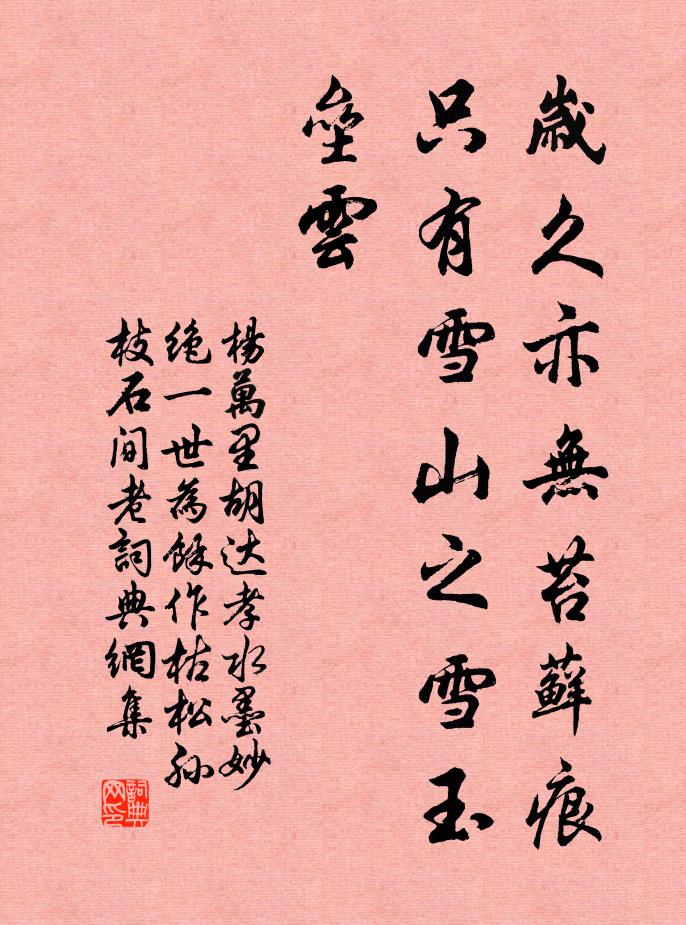 歲久亦無苔蘚痕
只有雪山之雪玉
壘雲
楊萬里胡达孝水墨妙
絶一世為餘作枯松孫
枝石间老詞典網集
詞典
网印